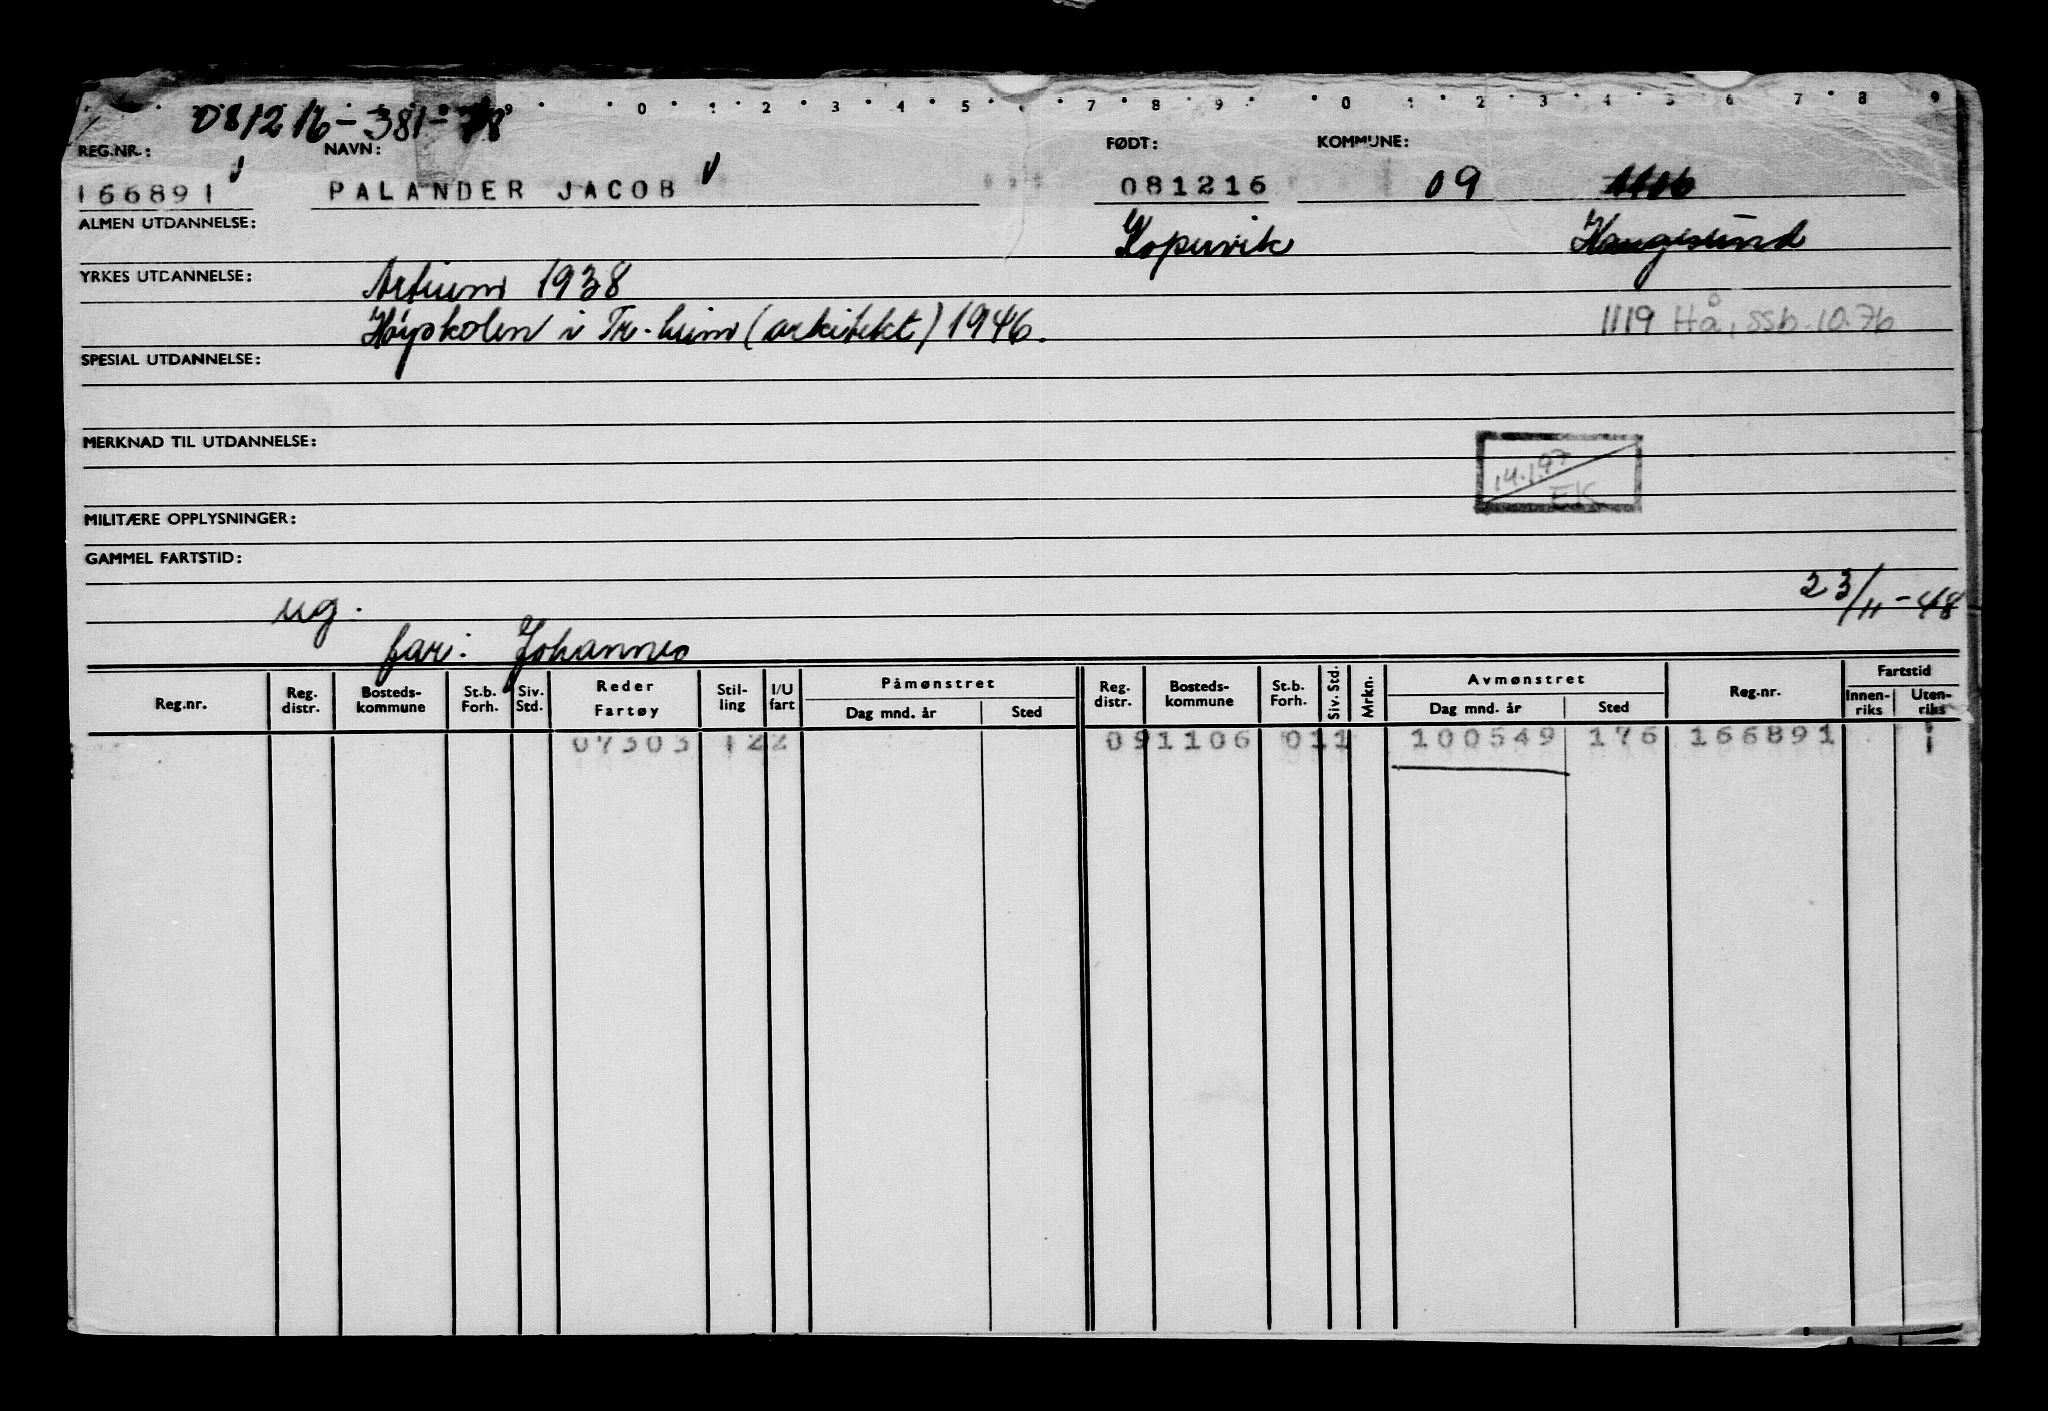 081216-381-78
0 1 2 3 4 5 7 8 9 0 1 2 3 4 5 6 7 8 9
REG.NR.: NAVN: FØDT: KOMMUNE:
166891 PALANDER JACOB 081216 09 1106
ALMEN UTDANNELSE: Kopervik Haugesund
YRKES UTDANNELSE: Artium 1938
Høyskolen i Tr.heim (arkitekt) 1946. 1119 Hå, ssb. 10.76
SPESIAL UTDANNELSE:
MERKNAD TIL UTDANNELSE:
14.1.97
EK
MILITÆRE OPPLYSNINGER:
GAMMEL FARTSTID:
ug. 23/11-48
far: Johannes
Reg.nr. Reg. distr. Bosteds- kommune St.b. Forh. Siv. Std. Reder Fartøy Stil- ling I/U fart Påmønstret Dag mnd. år Sted Reg. distr. Bosteds- kommune St.b. Forh. Siv. Std. Mrkn. Avmønstret Dag mnd. år Sted Reg.nr. Fartstid Innen- riks Uten- riks
07303 122 091106 011 100549 176 166891 1